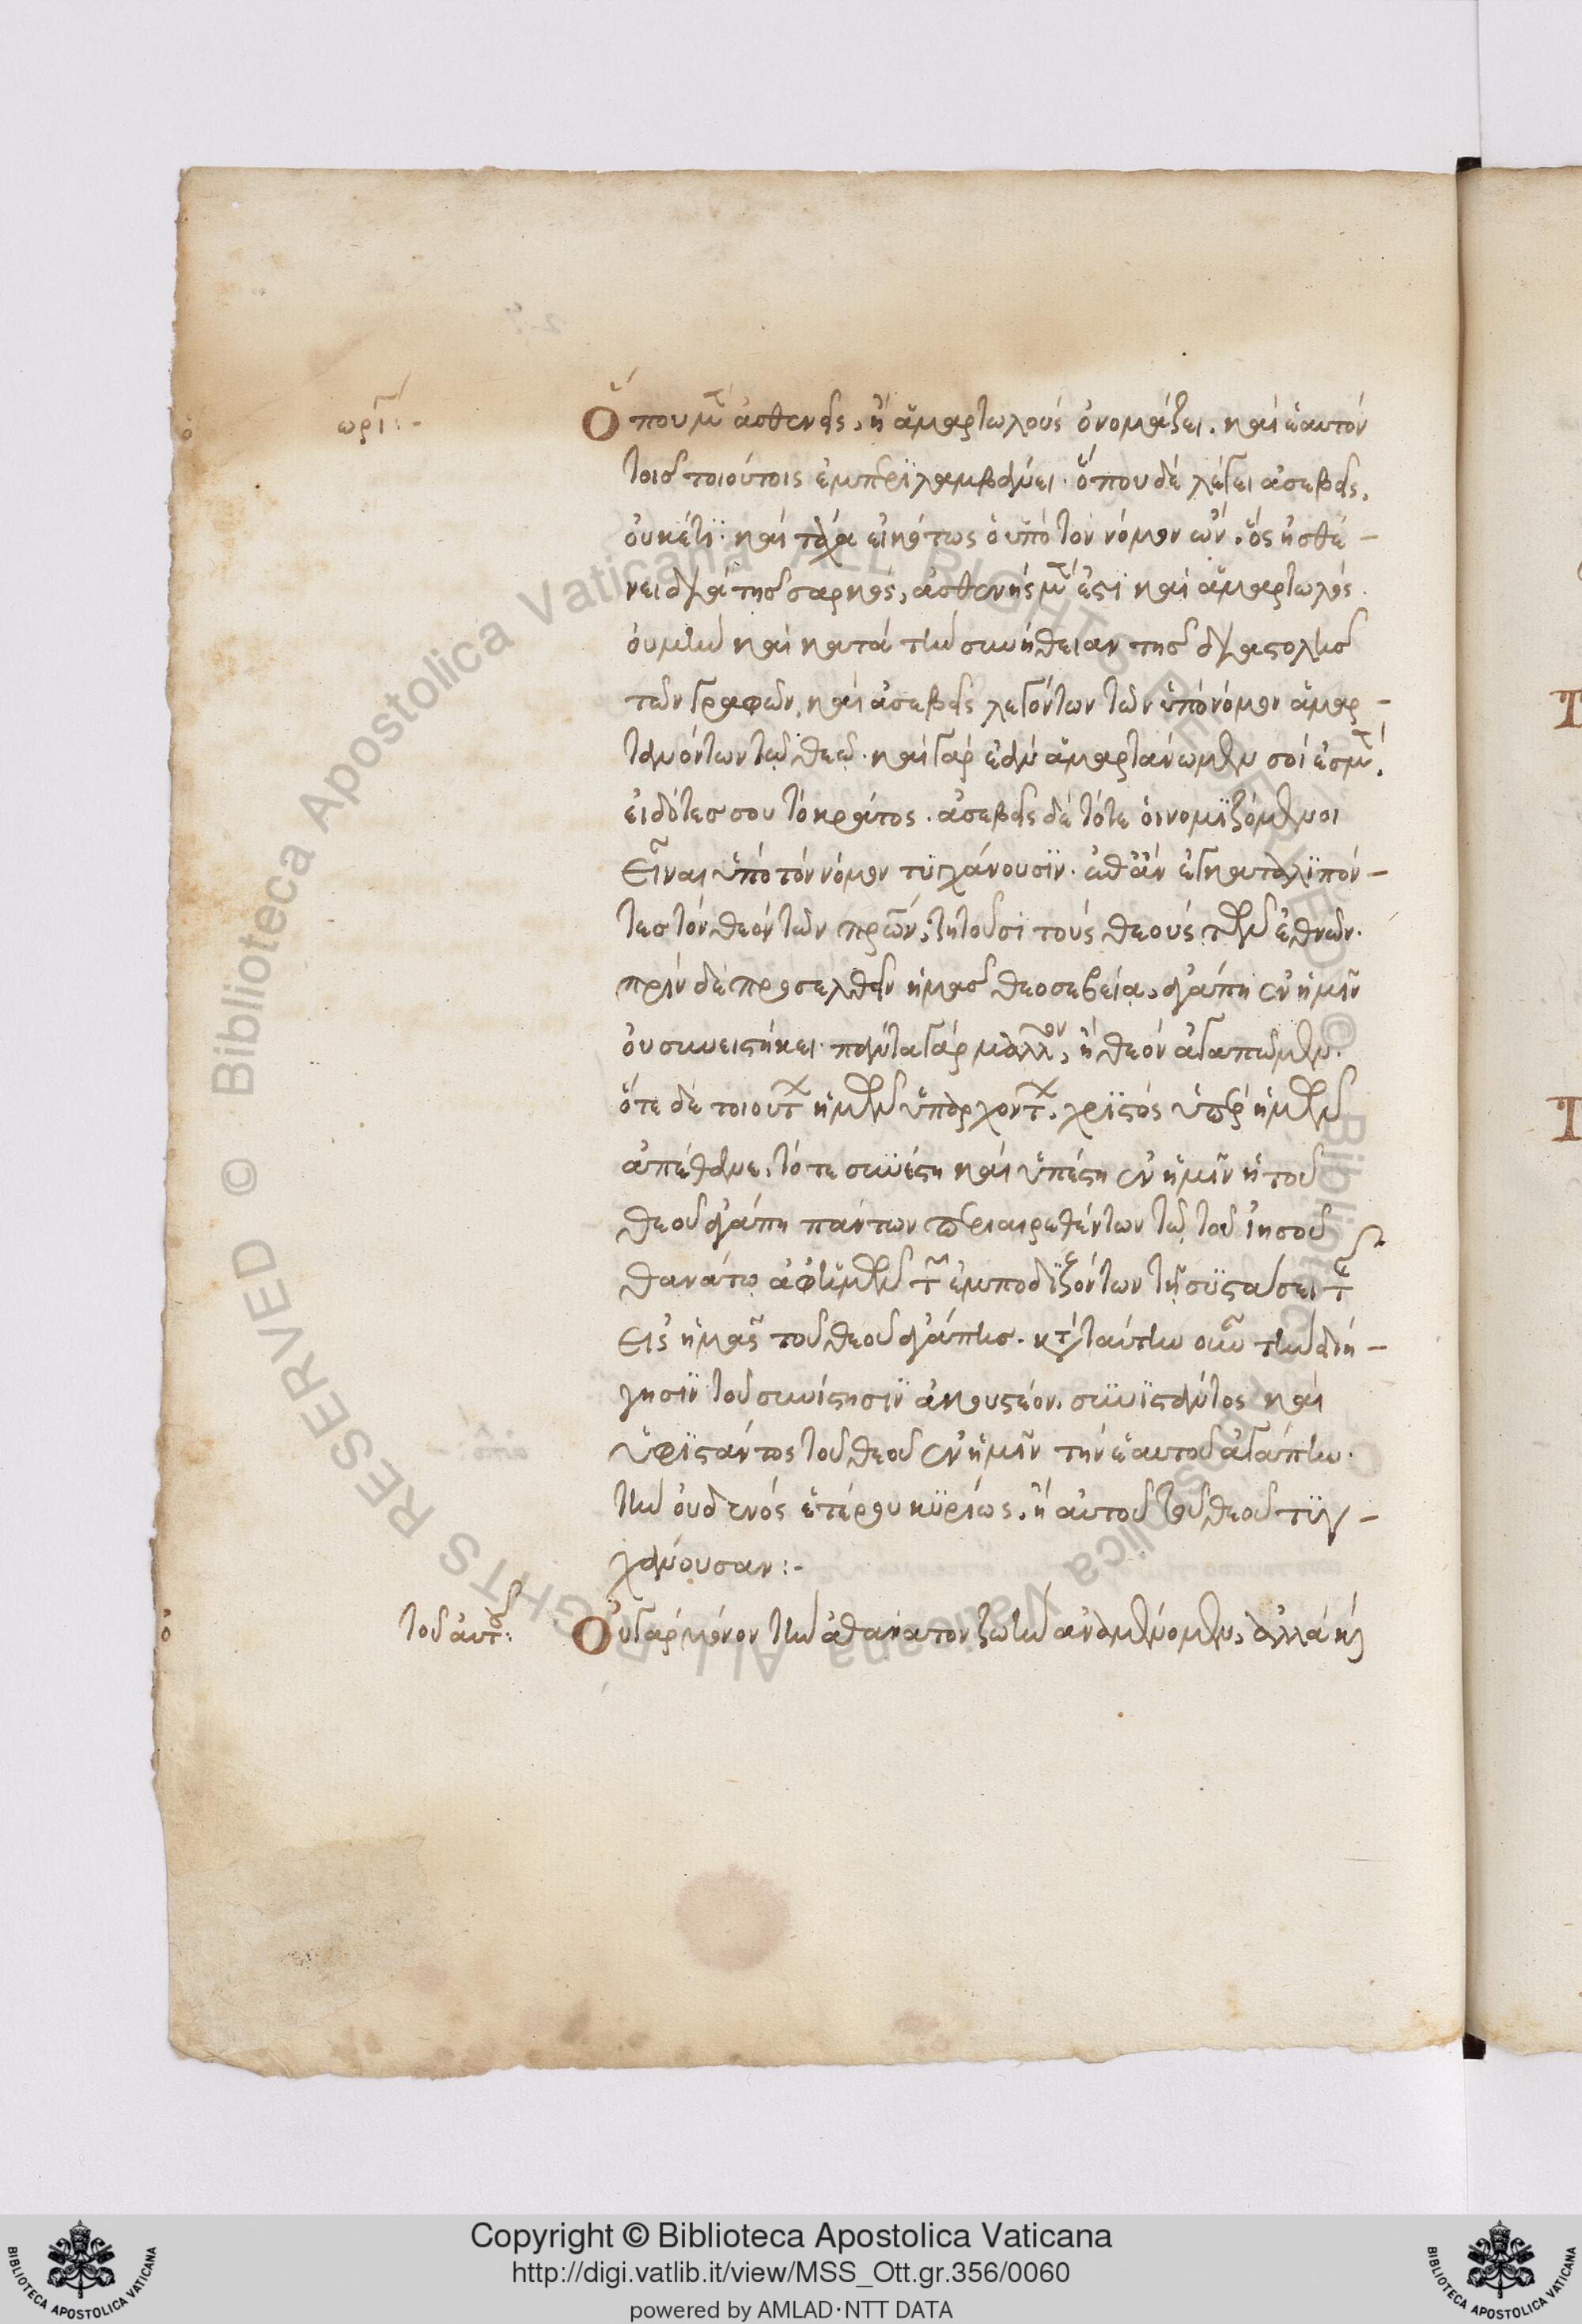 ωρι:-
Ὅπου μὲν ἀσθενεῖς, ἢ ἁμαρτωλοὺς ὀνομάζει, καὶ ἑαυτὸν
τοῖς τοιούτοις ἐμπεριλαμβάνει· ὅπου δὲ λέγει ἀσεβεῖς,
οὐκέτι· καὶ τάχα εἰκότως ὁ ὑπὸ τὸν νόμον ὤν, ὃς ἠσθέ-
νει διὰ τῆς σαρκός, ἀσθενὴς μέν ἐστι καὶ ἁμαρτωλός·
οὐ μὴν καὶ κατὰ τὴν συνήθειαν τῆς διαστολῆς
τῶν γραφῶν, καὶ ἀσεβεῖς λεγόντων τῶν ὑπὸ νόμον ἁμαρ-
τανόντων τῷ θεῷ· καὶ γὰρ ἐὰν ἁμαρτάνωμεν σοί ἐσμεν,
εἰδότες σου τὸ κράτος. ἀσεβεῖς δὲ τότε οἱ νομιζόμενοι
εἶναι ὑπὸ τὸν νόμον τυγχάνουσιν· ἐπὰν ἐγκαταλιπόν-
τες τὸν θεὸν τῶν πρων, ζητοῦσι τοὺς θεοὺς τῶν ἐθνῶν·
πρὶν δὲ προσελθεῖν ἡμᾶς θεοσεβείᾳ, ἀγάπη ἐν ἡμῖν
οὐ συνειστήκει· πάντα γὰρ μᾶλλον, ἢ θεὸν ἀγαπῶμεν·
ὅτε δὲ τοιούτων ἡμῶν ὑπαρχόντων, χριστὸς ὑπὲρ ἡμῶν
ἀπέθανε, τότε συνέστη καὶ ὑπέστη ἐν ἡμῖν ἡ τοῦ
θεοῦ ἀγάπη πάντων περιαιρεθέντων τῷ τοῦ ἰησοῦ
θανάτῳ ἀφ' ἡμῶν τῶν ἐμποδιζόντων τῇ συστάσει τῆς
εἰς ἡμᾶς τοῦ θεοῦ ἀγάπης· κατὰ ταύτην οὖν τὴν διή-
γησιν τοῦ συνίστησιν ἀκουστέον, συνιστάντος καὶ
ὑφιστάντος τοῦ θεοῦ ἐν ἡμῖν τὴν ἑαυτοῦ ἀγάπην·
τὴν οὐδενὸς ἑτέρου κυρίως, ἢ αὐτοῦ τοῦ θεοῦ τυγ-
χάνουσαν:-
τοῦ αὐτοῦ:
Οὐ γὰρ μόνον τὴν ἀθάνατον ζωὴν ἀναμένομεν, ἀλλὰ καὶ
Copyright © Biblioteca Apostolica Vaticana
http://digi.vatlib.it/view/MSS_Ott.gr.356/0060
powered by AMLAD·NTT DATA